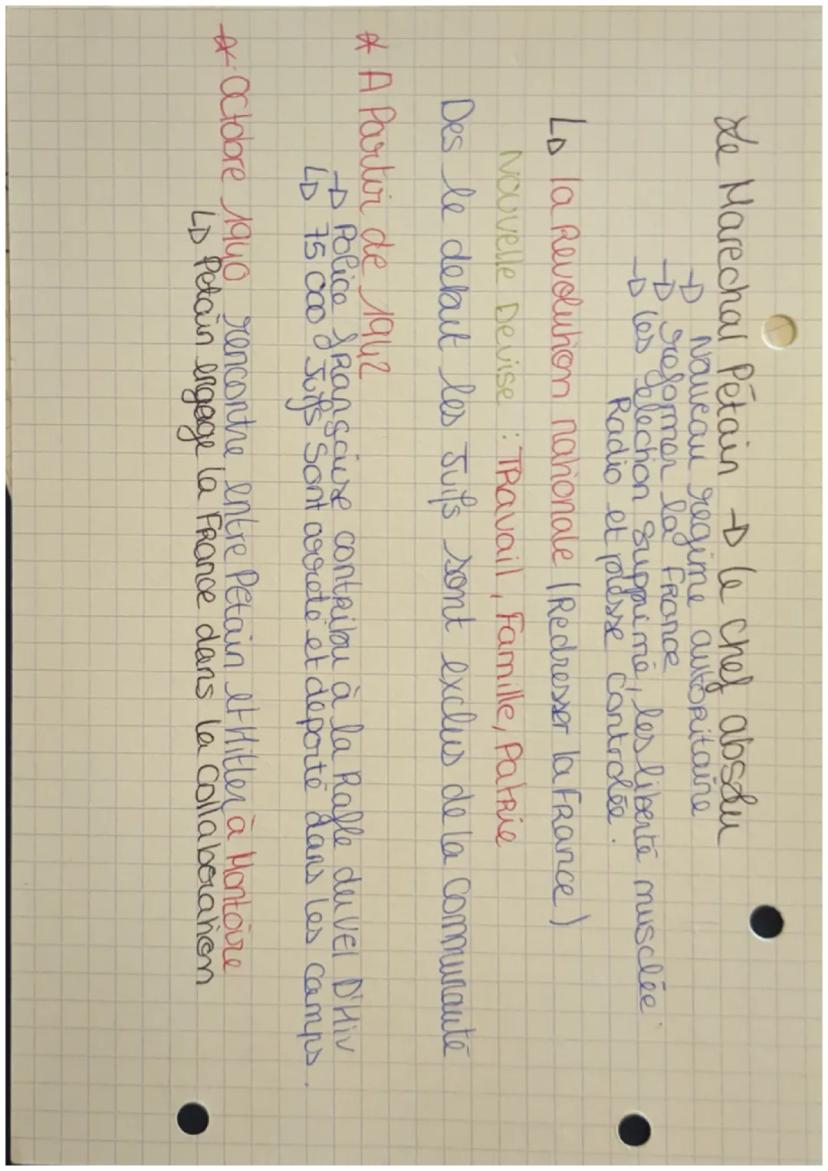 Le Marechal Pétain → le chef absolu
→ Nouveau regime autoritaire
→ reformer la France
→ les election supprimé, les liberté musclée
Radio et presse controlée.
↳ la Revolution nationale (Redresser la France)
Nouvelle Devise : TRavail, Famille, Patrie
Des le debut les Juifs sont exclus de la Communauté
* A Partir de 1942
→ Police française contribu à la Rafle du VEl D'Hiv
↳ 75 000 Juifs sont arreté et deporté dans les camps.
* Octobre 1940 rencontre entre Petain et Hitler à Montoire
↳ Petain engage la France dans la Collaboration